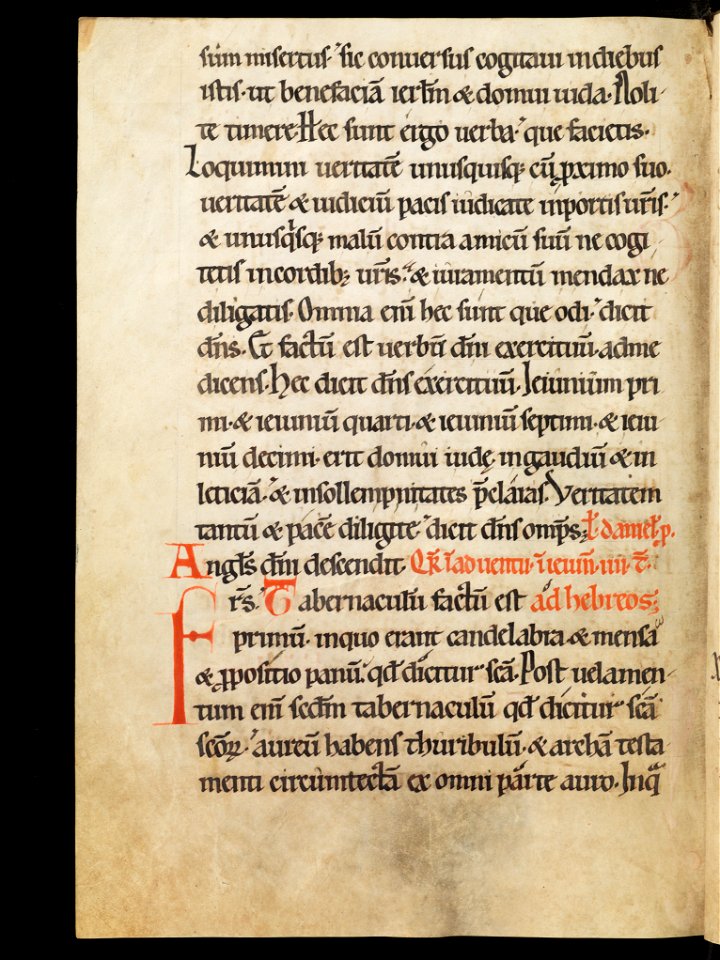 sũm misertus. sic conuersus cogitaui indiebus
istis. ut benefaciā ierłm & domui iuda. Noli
te timere. Hec sunt ergo uerba. que facietis.
Loquimini ueritatē unusquisq; cū ꝓximo suo.
ueritatē & iudiciū pacis iudicate inportis ur̄is.
& unusq̇sq; malū contra amicū suū ne cogi
tetis incordib; ur̄is. & iuramentū mendax ne
diligatis. Omnia enī hec sunt que odi. dicit
dn̄s. Et factū est uerbū dn̄i exercituū. adme
dicens. Hec dicit dn̄s exercituū. Ieiunium pri
mi. & ieiuniū quarti. & ieiuniū septimi. & ieiu
niū decimi. erit domui iudę ingaudiū & in
leticiā. & insollempnitates p̄claras. Veritatem
tantū & pacē diligite. dicit dn̄s omps; ł daniel. p.
Angłs dn̄i descendit.
r̄s. Tabernaculū factū est ad hebreos;
F primū. inquo erant candelabra & mensa
& ꝓpositio panū. qđ dicitur scā. Post uelamen
tum enī scđm tabernaculū qđ dicitur scā
scōꝝ. aureū habens thuribulū. & archā testa
menti circumtectā ex omni parte auro. Inq̄